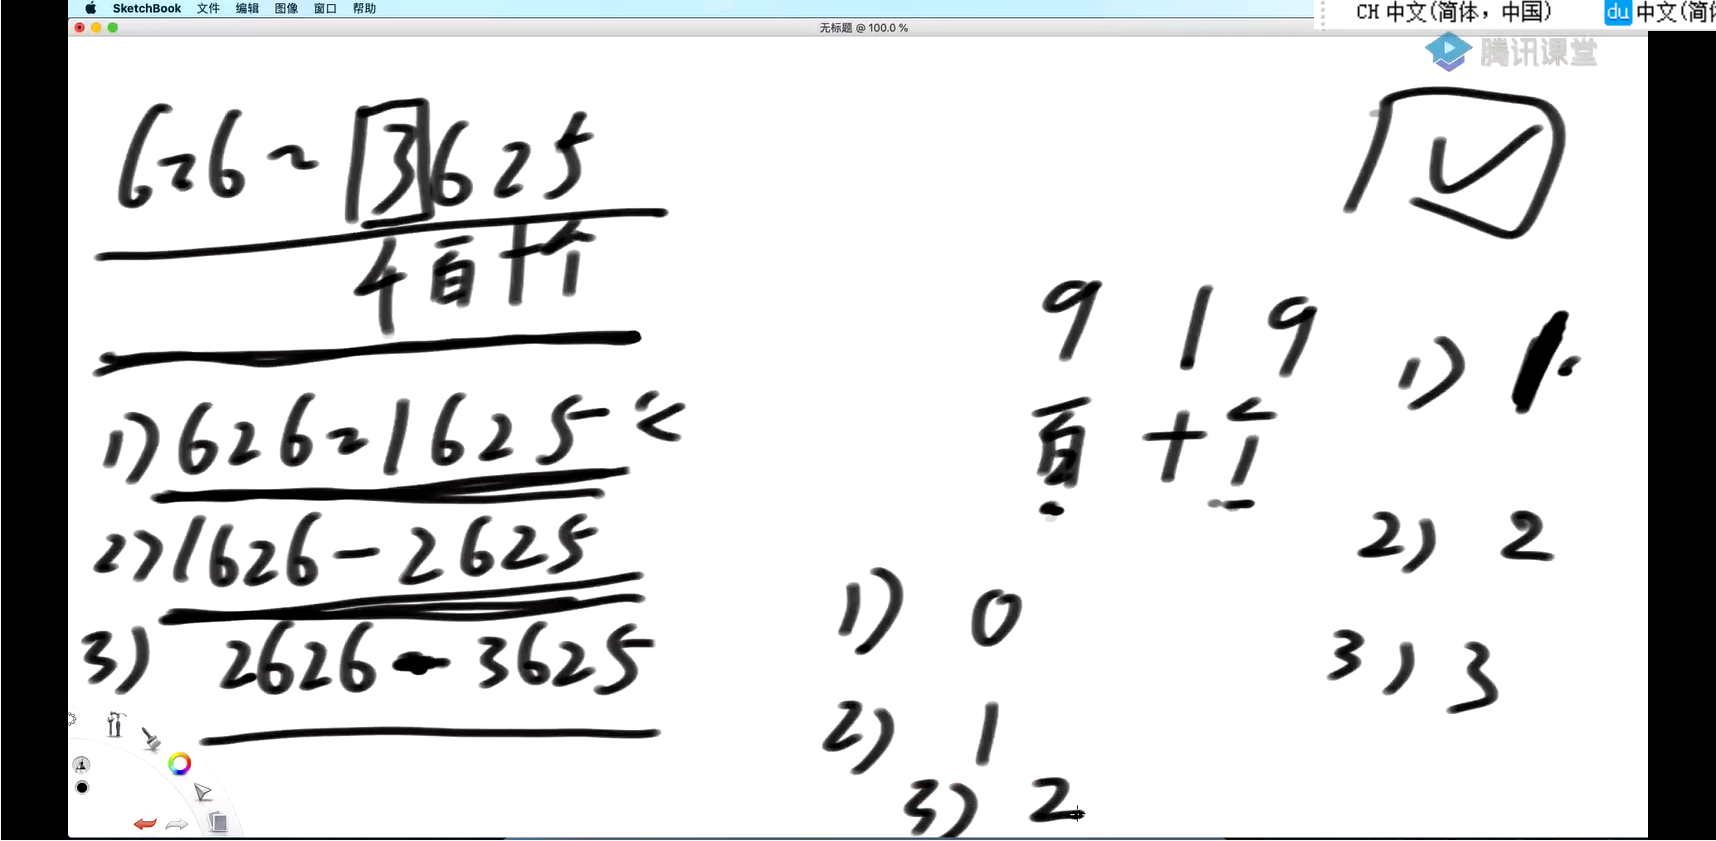 SketchBook 文件 编辑 图像 窗口 帮助
CH 中文(简体，中国)
du 中文(简体
无标题 @ 100.0 %
腾讯课堂
626~3625
千百十个
1) 626~1625
2) 1626-2625
3) 2626-3625
9 1 9
百 十 个
1) 0
2) 1
3) 2
1)
2) 2
3) 3